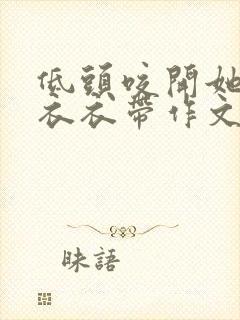 低頭咬開她
衣衣帶作文
昧語